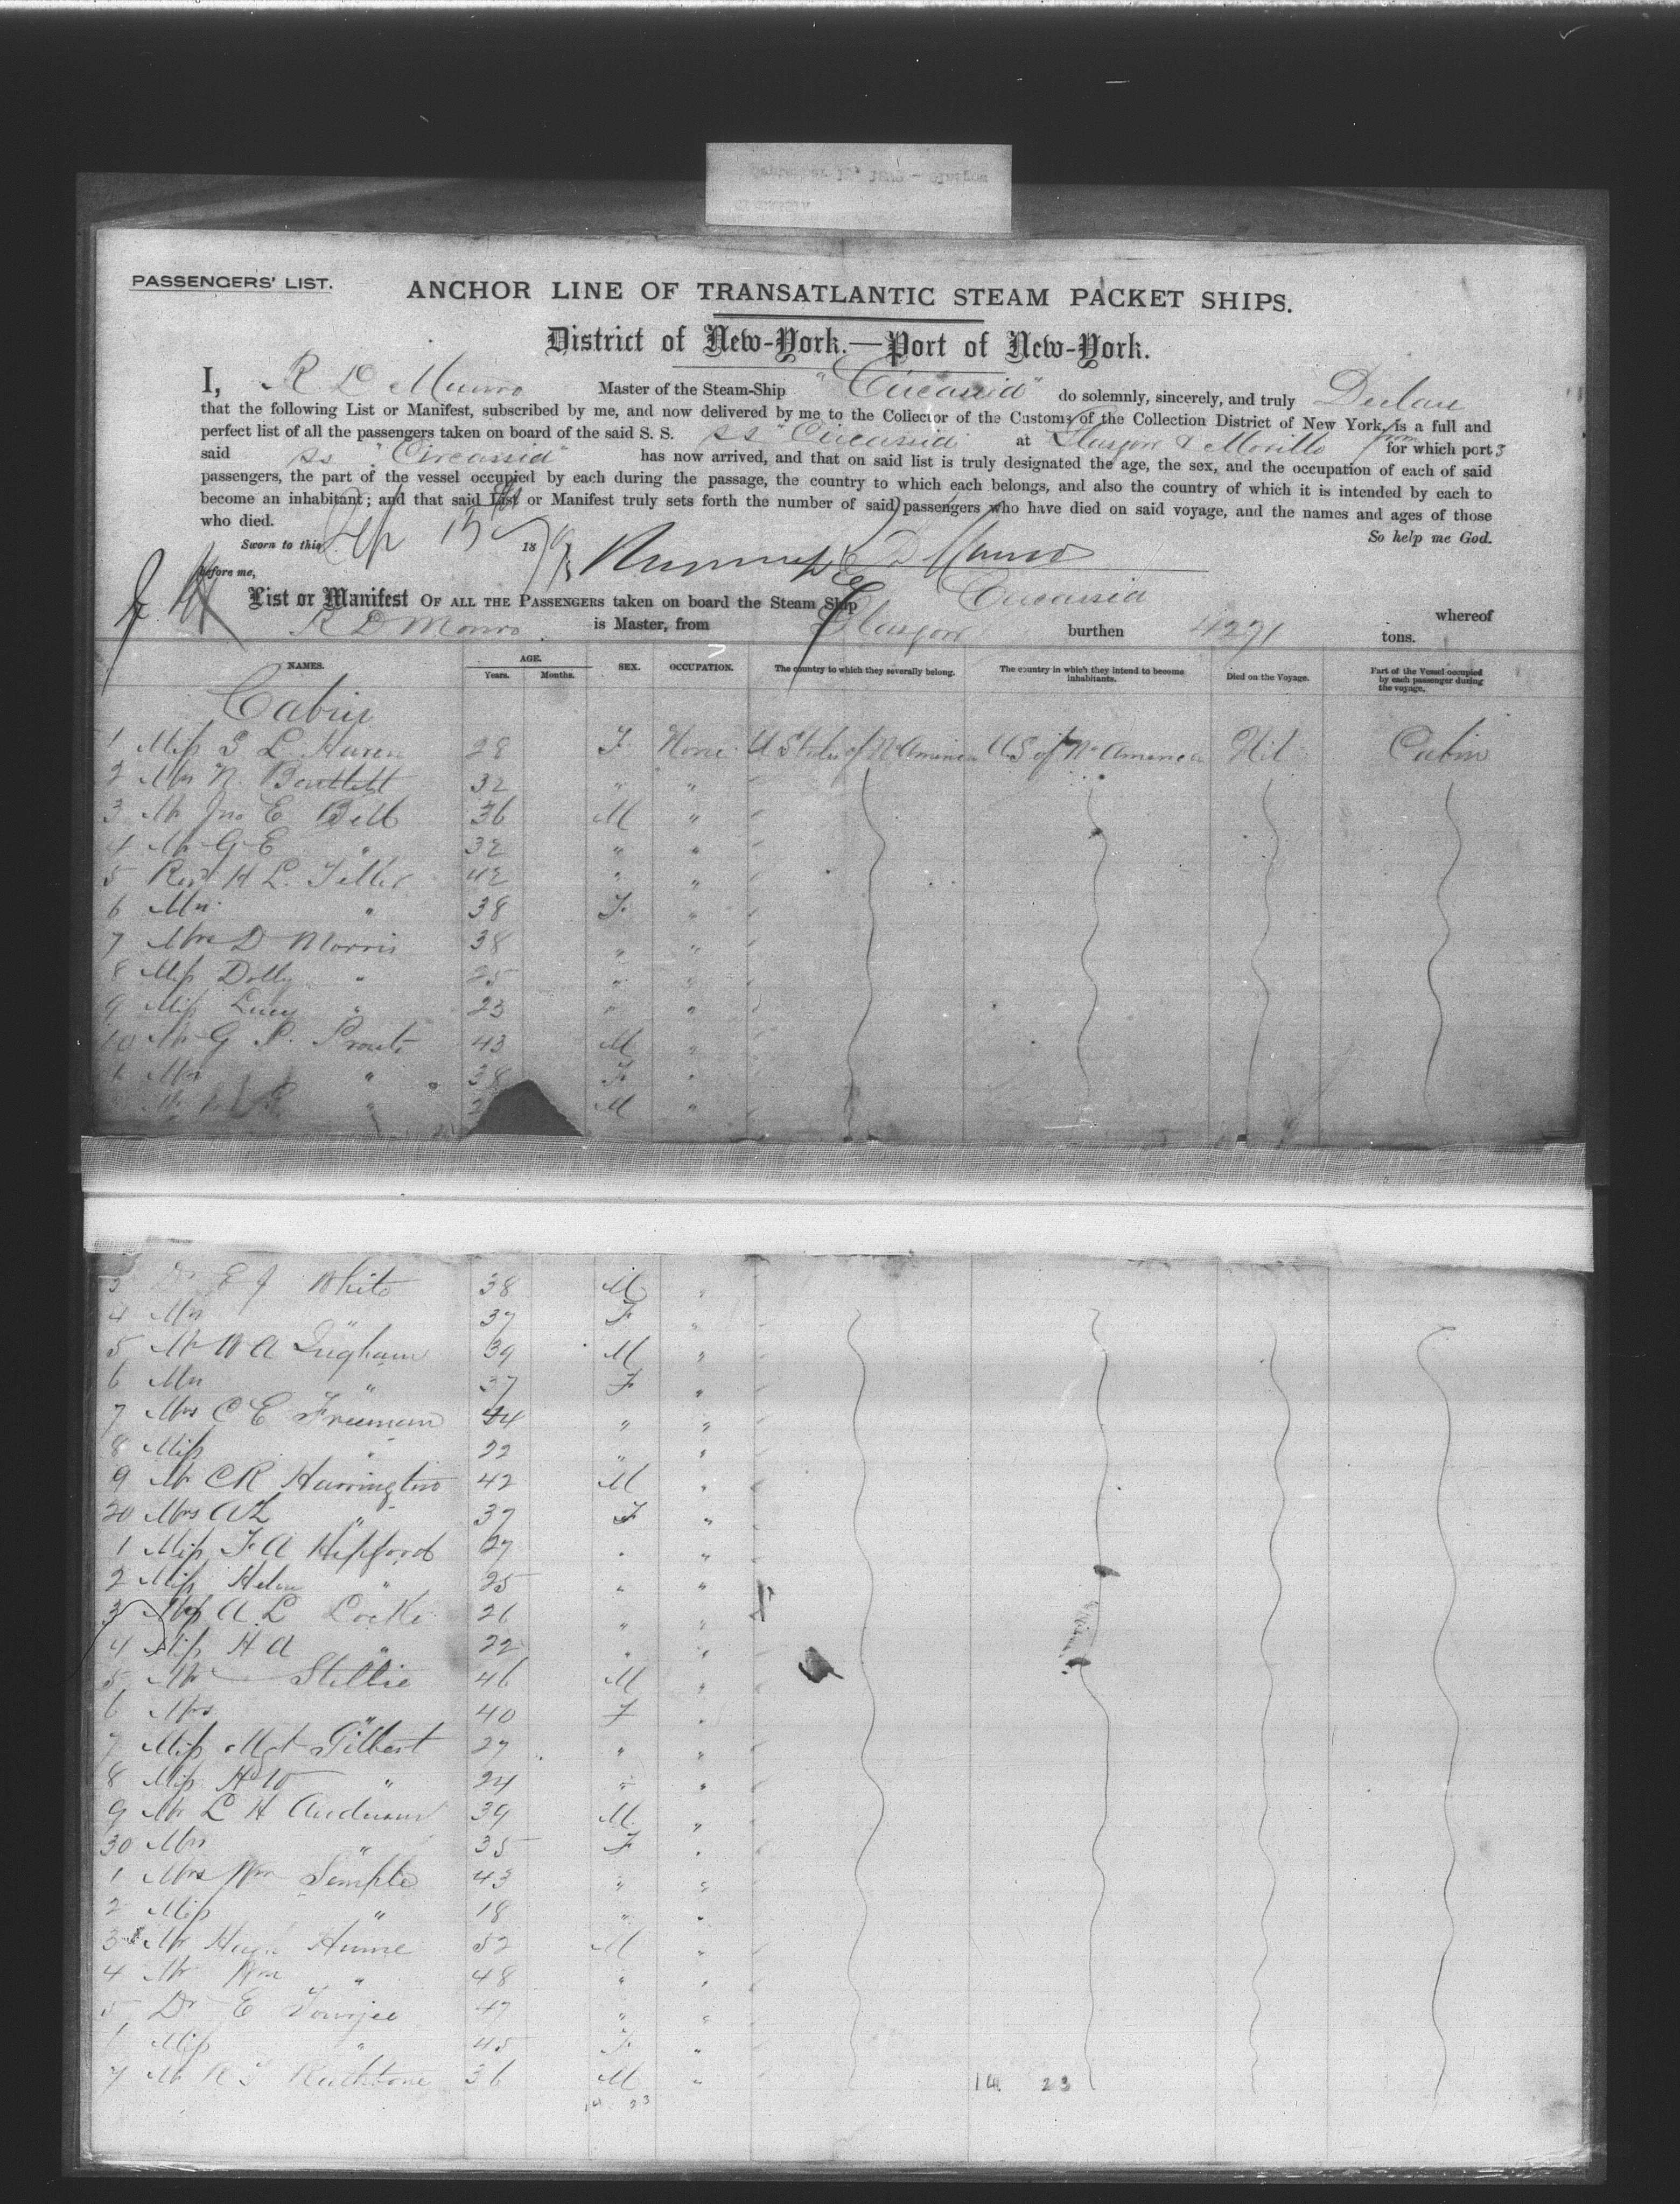 PASSENGERS' LIST.
ANCHOR LINE OF TRANSATLANTIC STEAM PACKET SHIPS.
District of New-York.—Port of New-York.
I, R. D. Munro Master of the Steam-Ship "Circassia" do solemnly, sincerely, and truly Declare
that the following List or Manifest, subscribed by me, and now delivered by me to the Collector of the Customs of the Collection District of New York, is a full and
perfect list of all the passengers taken on board of the said S. S. ss "Circassia" at Glasgow & Moville from for which port s
said ss "Circassia" has now arrived, and that on said list is truly designated the age, the sex, and the occupation of each of said
passengers, the part of the vessel occupied by each during the passage, the country to which each belongs, and also the country of which it is intended by each to
become an inhabitant; and that said List or Manifest truly sets forth the number of said passengers who have died on said voyage, and the names and ages of those
who died. So help me God.
Sworn to this Sep 13 18
before me,
D Munro
List or Manifest OF ALL THE PASSENGERS taken on board the Steam Ship Circassia whereof
R D Munro is Master, from Glasgow burthen 4271 tons.
NAMES. AGE. Years. Months. SEX. OCCUPATION. The country to which they severally belong. The country in which they intend to become inhabitants. Died on the Voyage. Part of the Vessel occupied by each passenger during the voyage.
Cabin
1 Miss S L 28 F None U States of N America U S of N America Nil Cabin
2 Mrs N. Bartlett 32 " "
3 Mr Jno E Bell 36 M "
4 Mr G E " 32 " "
5 Revd H L. 42 " "
6 Mrs " 38 F "
7 Mrs D Morris 38 " "
8 Miss Dolly " 25 " "
9 Miss Lucy " 23 " "
10 Mr G P. 43 M "
1 Mrs " 38 F "
Mr " M "
3 Dr E J White 38 M "
4 Mrs " 37 F "
5 Mr W A Ingham 39 M "
6 Mrs " 37 F "
7 Mrs C E Freeman 44 " "
8 Miss " 22 " "
9 Mr C R Harrington 42 M "
20 Mrs A L " 37 F "
1 Miss F A 27 " "
2 Miss Helen " 25 " "
3 Miss A L Locke 26 " "
4 Miss H A " 22 " "
5 Mr Stillie 46 M "
6 Mrs " 40 F "
7 Miss Mgt Gilbert 27 " "
8 Miss H W " 24 " "
9 Mr L H Anderson 39 M "
30 Mrs " 35 F "
1 Mrs Wm Semple 43 " "
2 Miss " 18 " "
3 Mr Hugh Hume 52 M "
4 Mr Wm " 48 " "
5 Dr E Tourjee 47 " "
Miss " 45 F "
7 Mr R Rathbone 36 M "
14 23
14 23